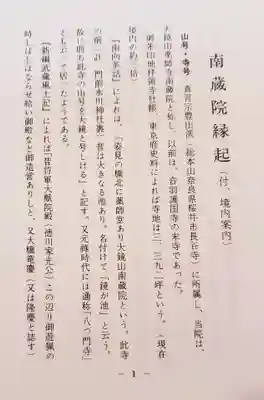 南蔵院縁起(付、境内案内)
山号・寺号 真言宗豊山派(総本山奈良県桜井市長谷寺)に所属し、当院は、
大鏡山薬師寺南蔵院と称し、以前は、音羽護国寺の末寺であった。
御朱印地拝領寺社帳、東京府史料によれば寺地は三、三九二坪という。(現在
境内の約三倍)
『南向茶話』によれば、「姿見の橋北に薬師堂あり大鏡山南蔵院という。此寺
の前に 門前氷川神社裏 昔は大きなる池あり。名付けて「鏡が池」と云う。
故に前も此寺の山号を大鏡と号しける」と記す。又元禄時代には通称「八つ門寺」
とも云って居たようである。
『新編武蔵風土記』によれば「昔将軍大猷院殿(徳川家光公)この辺り御遊猟の
時しばしばならせ給い御殿など御造営ありしと、又大橋竜慶(又は隆慶と誌す)
— 1 —